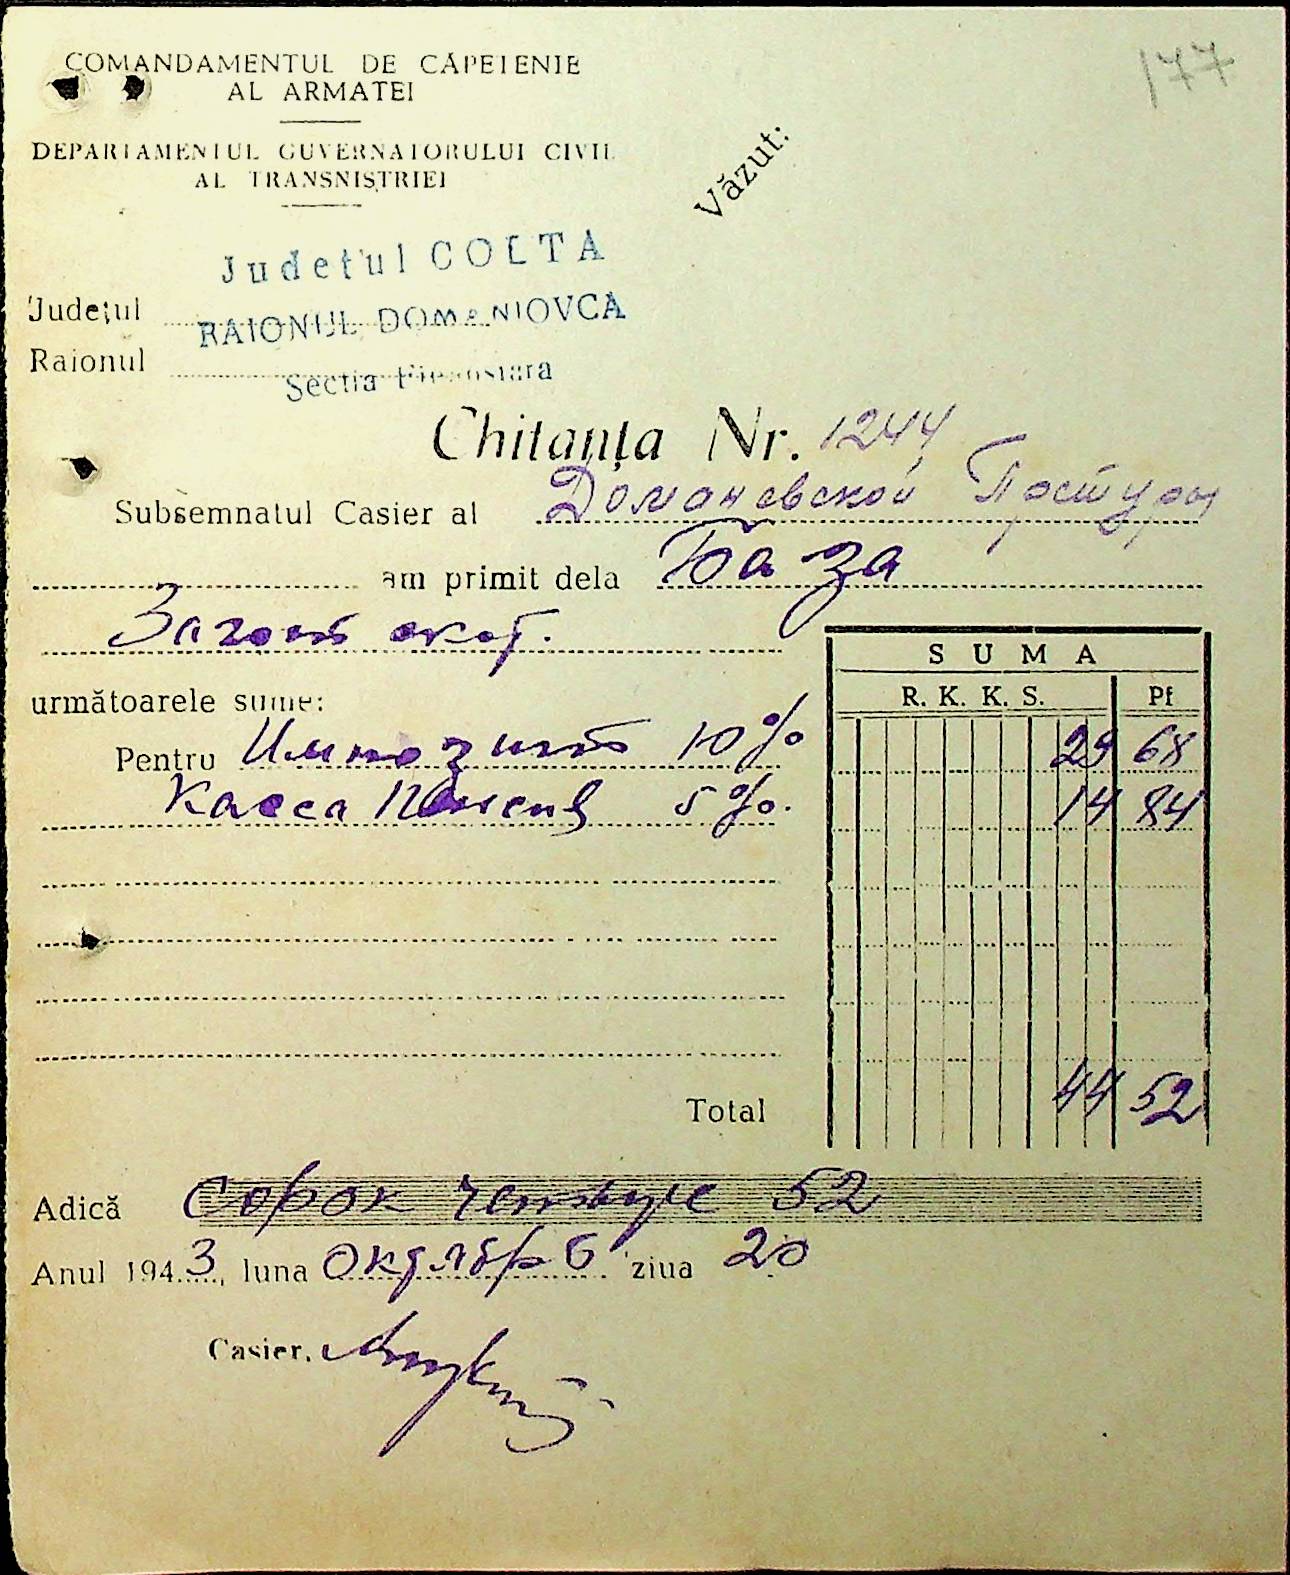 177
COMANDAMENTUL DE CĂPETENIE
AL ARMATEI
DEPARTAMENTUL GUVERNATORULUI CIVIL
AL TRANSNISTRIEI
Văzut:
Judetul COLTA
Județul
RAIONUL DOMANIOVCA
Raionul
Sectia Financiara
Chitanța Nr. 1244
Subsemnatul Casier al Доманевской Претуры
am primit dela База
Загот скот.
următoarele sume:
SUMA
R. K. K. S. Pf
Pentru Импозит 10% 29 68
Касса Пенсий 5%. 14 84
Total 44 52
Adică сорок четыре 52
Anul 1943, luna Октябрь ziua 20
Casier,